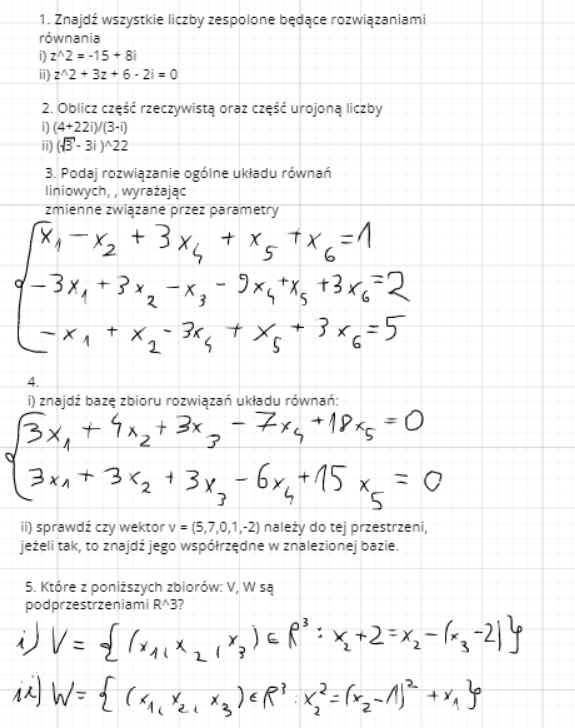 1. Znajdź wszystkie liczby zespolone będące rozwiązaniami
równania
i) z^2 = -15 + 8i
ii) z^2 + 3z + 6 - 2i = 0
2. Oblicz część rzeczywistą oraz część urojoną liczby
i) (4+22i)/(3-i)
ii) (√3 - 3i )^22
3. Podaj rozwiązanie ogólne układu równań
liniowych, , wyrażając
zmienne związane przez parametry
x₁ - x₂ + 3x₄ + x₅ + x₆ = 1
-3x₁ + 3x₂ - x₃ - 9x₄ + x₅ + 3x₆ = 2
-x₁ + x₂ - 3x₄ + x₅ + 3x₆ = 5
4.
i) znajdź bazę zbioru rozwiązań układu równań:
3x₁ + 4x₂ + 3x₃ - 7x₄ + 18x₅ = 0
3x₁ + 3x₂ + 3x₃ - 6x₄ + 15x₅ = 0
ii) sprawdź czy wektor v = (5,7,0,1,-2) należy do tej przestrzeni,
jeżeli tak, to znajdź jego współrzędne w znalezionej bazie.
5. Które z poniższych zbiorów: V, W są
podprzestrzeniami R^3?
i) V = { (x₁, x₂, x₃) ∈ R³ : x₂ + 2 = x₂ - (x₃ - 2) }
ii) W = { (x₁, x₂, x₃) ∈ R³ : x₂² = (x₂ - 1)² + x₁ }